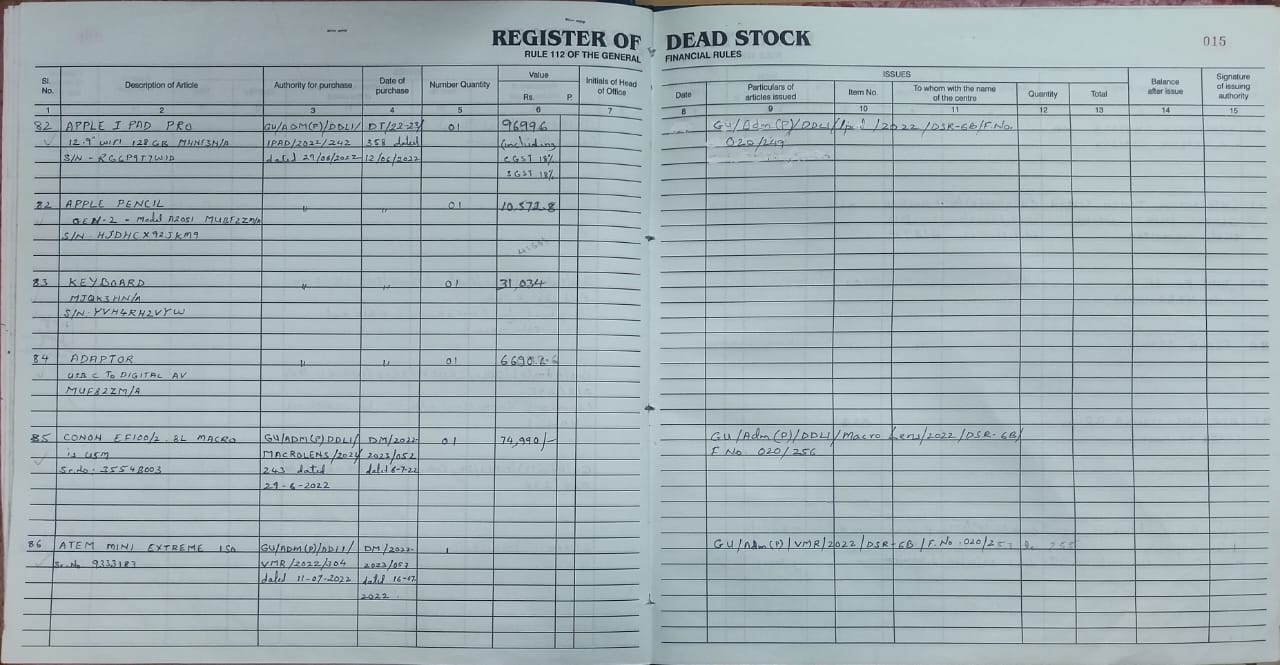 REGISTER OF DEAD STOCK
RULE 112 OF THE GENERAL FINANCIAL RULES
015
Sl. No.
Description of Article
Authority for purchase
Date of purchase
Number Quantity
Value
Rs. P.
Initials of Head of Office
ISSUES
Date
Particulars of articles issued
Item No.
To whom with the name of the centre
Quantity
Total
Balance after issue
Signature of issuing authority
1 2 3 4 5 6 7 8 9 10 11 12 13 14 15
82 APPLE I PAD PRO GU/ADM(P)/DDLI/ DT/22-23/ 01 96996 GU/Adm(P)/DDLI/ /2022/DSR-6B/F.No.
12.9" WIFI 128 GB MHNF3HN/A IPAD/2022/242 358 dated (including 020/249
S/N - RGGP9T7W1D dated 29/06/2022 12/06/2022 CGST 18%
SGST 18%
82 APPLE PENCIL " " 01 10,572.8
GEN-2 - Model A2051 MU8F2ZM/A
S/N HJDHCX92JKM9
83 KEYBOARD " " 01 31,034
MJQK3HN/A
S/N YVH4RH2VYW
84 ADAPTOR " " 01 6690.2
USB C To DIGITAL AV
MUF82ZM/A
85 CONON EF100/2.8L MACRO GU/ADM(P)DDLI/ DM/2022- 01 74,990/- GU/Adm(P)/DDLI/Macro Lens/2022/DSR-6B/
is USM MACROLENS/2022/ 2023/052 F No. 020/256
Sr.No. 35548003 243 dated dated 6-7-22
29-6-2022
86 ATEM MINI EXTREME ISO GU/ADM(P)/DDLI/ DM/2022- 1 GU/Adm(P)/VMR/2022/DSR-6B/F.No.020/253 to 255
Sr.No 9333183 VMR/2022/304 2023/057
dated 11-07-2022 dated 16-07-
2022